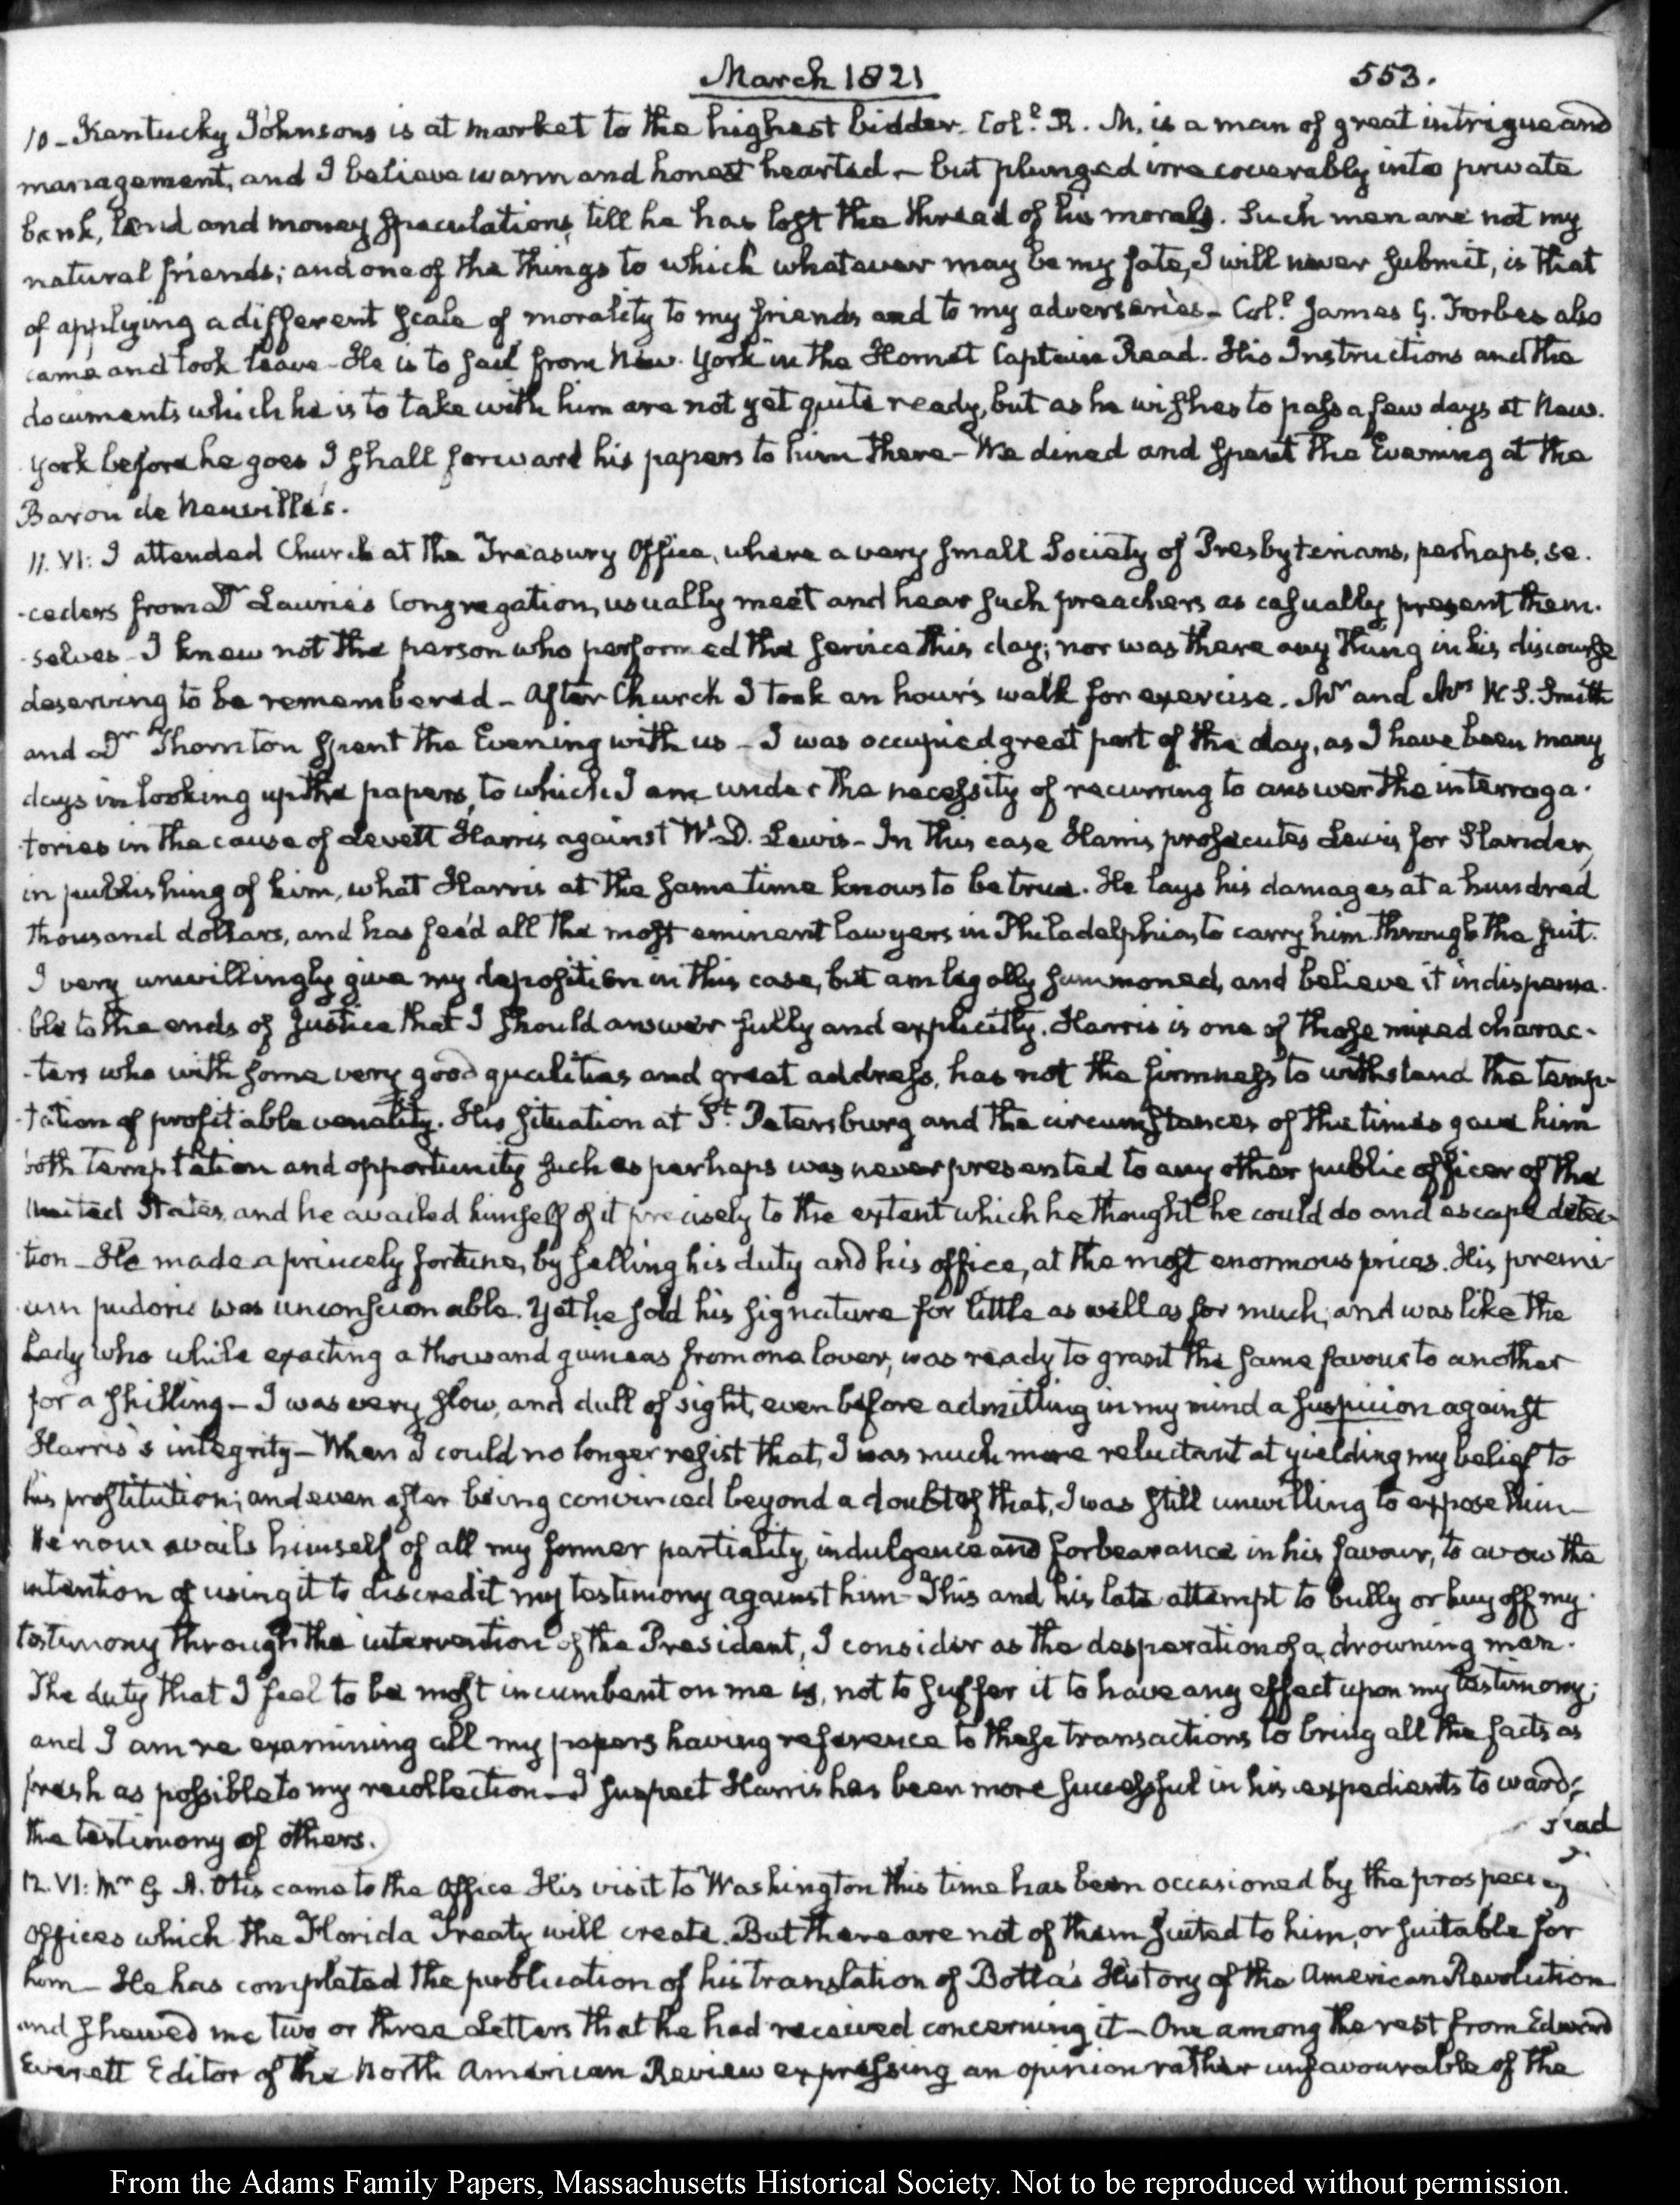 March 1821
553.
10 - Kentucky Johnsons is at market to the highest bidder. Col.l R. M. is a man of great intrigue and
management, and I believe warm and honest hearted - but plunged irrecoverably into private
bank, land and money speculations, till he has lost the thread of his morals. Such men are not my
natural friends; and one of the things to which whatever may be my fate, I will never submit, is that
of applying a different scale of morality to my friends and to my adversaries - Col.l James G. Forbes also
came and took leave - He is to sail from New-York in the Hornet Captain Read. His Instructions and the
documents which he is to take with him are not yet quite ready, but as he wishes to pass a few days at New-
York before he goes I shall forward his papers to him there - We dined and spent the Evening at the
Baron de Neuville's.
11. VI: I attended Church at the Treasury Office, where a very small Society of Presbyterians, perhaps, se-
-ceders from Dr Laurie's Congregation, usually meet and hear such preachers as casually present them-
-selves - I knew not the person who performed the service this day; nor was there any thing in his discourse
deserving to be remembered - After Church I took an hour's walk for exercise. Mr and Mrs W. S. Smith
and Dr Thornton spent the Evening with us - I was occupied great part of the day, as I have been many
days in looking up the papers, to which I am under the necessity of recurring to answer the interroga-
-tories in the cause of Levett Harris against W. D. Lewis - In this case Harris prosecutes Lewis for Slander,
in publishing of him, what Harris at the same time knows to be true. He lays his damages at a hundred
thousand dollars, and has fee'd all the most eminent lawyers in Philadelphia, to carry him through the suit.
I very unwillingly give my deposition in this case, but am legally summoned, and believe it indispensa-
-ble to the ends of Justice that I should answer fully and explicitly. Harris is one of those mixed charac-
-ters who with some very good qualities and great address, has not the firmness to withstand the temp-
-tation of profitable venality. His situation at St. Petersburg and the circumstances of the times gave him
both temptation and opportunity such as perhaps was never presented to any other public officer of the
United States, and he availed himself of it precisely to the extent which he thought he could do and escape detec-
-tion - He made a princely fortune, by selling his duty and his office, at the most enormous prices. His premi-
-um pudoris was unconscionable. Yet he sold his signature for little as well as for much; and was like the
Lady who while exacting a thousand guineas from one lover, was ready to grant the same favour to another
for a shilling - I was very slow, and dull of sight, even before admitting in my mind a suspicion against
Harris's integrity - When I could no longer resist that, I was much more reluctant at yielding my belief to
his prostitution; and even after being convinced beyond a doubt of that, I was still unwilling to expose him -
He now avails himself of all my former partiality, indulgence and forbearance in his favour, to avow the
intention of using it to discredit my testimony against him - This and his late attempt to bully or buy off my
testimony through the intervention of the President, I consider as the desperation of a drowning man.
The duty that I feel to be most incumbent on me is, not to suffer it to have any effect upon my testimony;
and I am re examining all my papers having reference to these transactions to bring all the facts as
fresh as possible to my recollection - I suspect Harris has been more successful in his expedients to ward
the testimony of others.
12. VI: Mr G. A. Otis came to the Office His visit to Washington this time has been occasioned by the prospect of
Offices which the Florida Treaty will create. But there are not of them suited to him, or suitable for
him - He has completed the publication of his translation of Botta's History of the American Revolution
and shewed me two or three Letters that he had received concerning it - One among the rest from Edward
Everett Editor of the North American Review expressing an opinion rather unfavourable of the
From the Adams Family Papers, Massachusetts Historical Society. Not to be reproduced without permission.